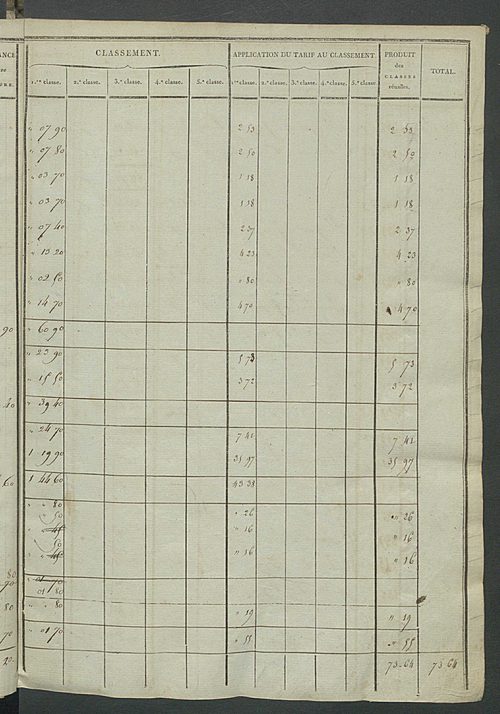 ANCE CLASSEMENT. APPLICATION DU TARIF AU CLASSEMENT. PRODUIT
des
CLASSES
réunies. TOTAL.
1.re classe. 2.e classe. 3.e classe. 4.e classe. 5.e classe. 1.re classe. 2.e classe. 3.e classe. 4.e classe. 5.e classe.
" 07 90 2 53 2 53
" 07 80 2 50 2 50
" 03 70 1 18 1 18
" 03 70 1 18 1 18
" 07 40 2 37 2 37
" 13 20 4 23 4 23
" 02 50 " 80 " 80
" 14 70 4 70 4 70
90 " 60 90
" 23 90 5 73 5 73
" 15 50 3 72 3 72
40 " 39 40
" 24 70 7 41 7 41
1 19 90 35 97 35 97
60 1 44 60 43 38
" " 80 " 26 " 26
50 " 16 " 16
" " 45
50 " 16 " 16
" " 45
80
90 01 70
01 80
80 " " 80 " 19 " 19
70 " 01 70 " 55 " 55
20 73 64 73 64